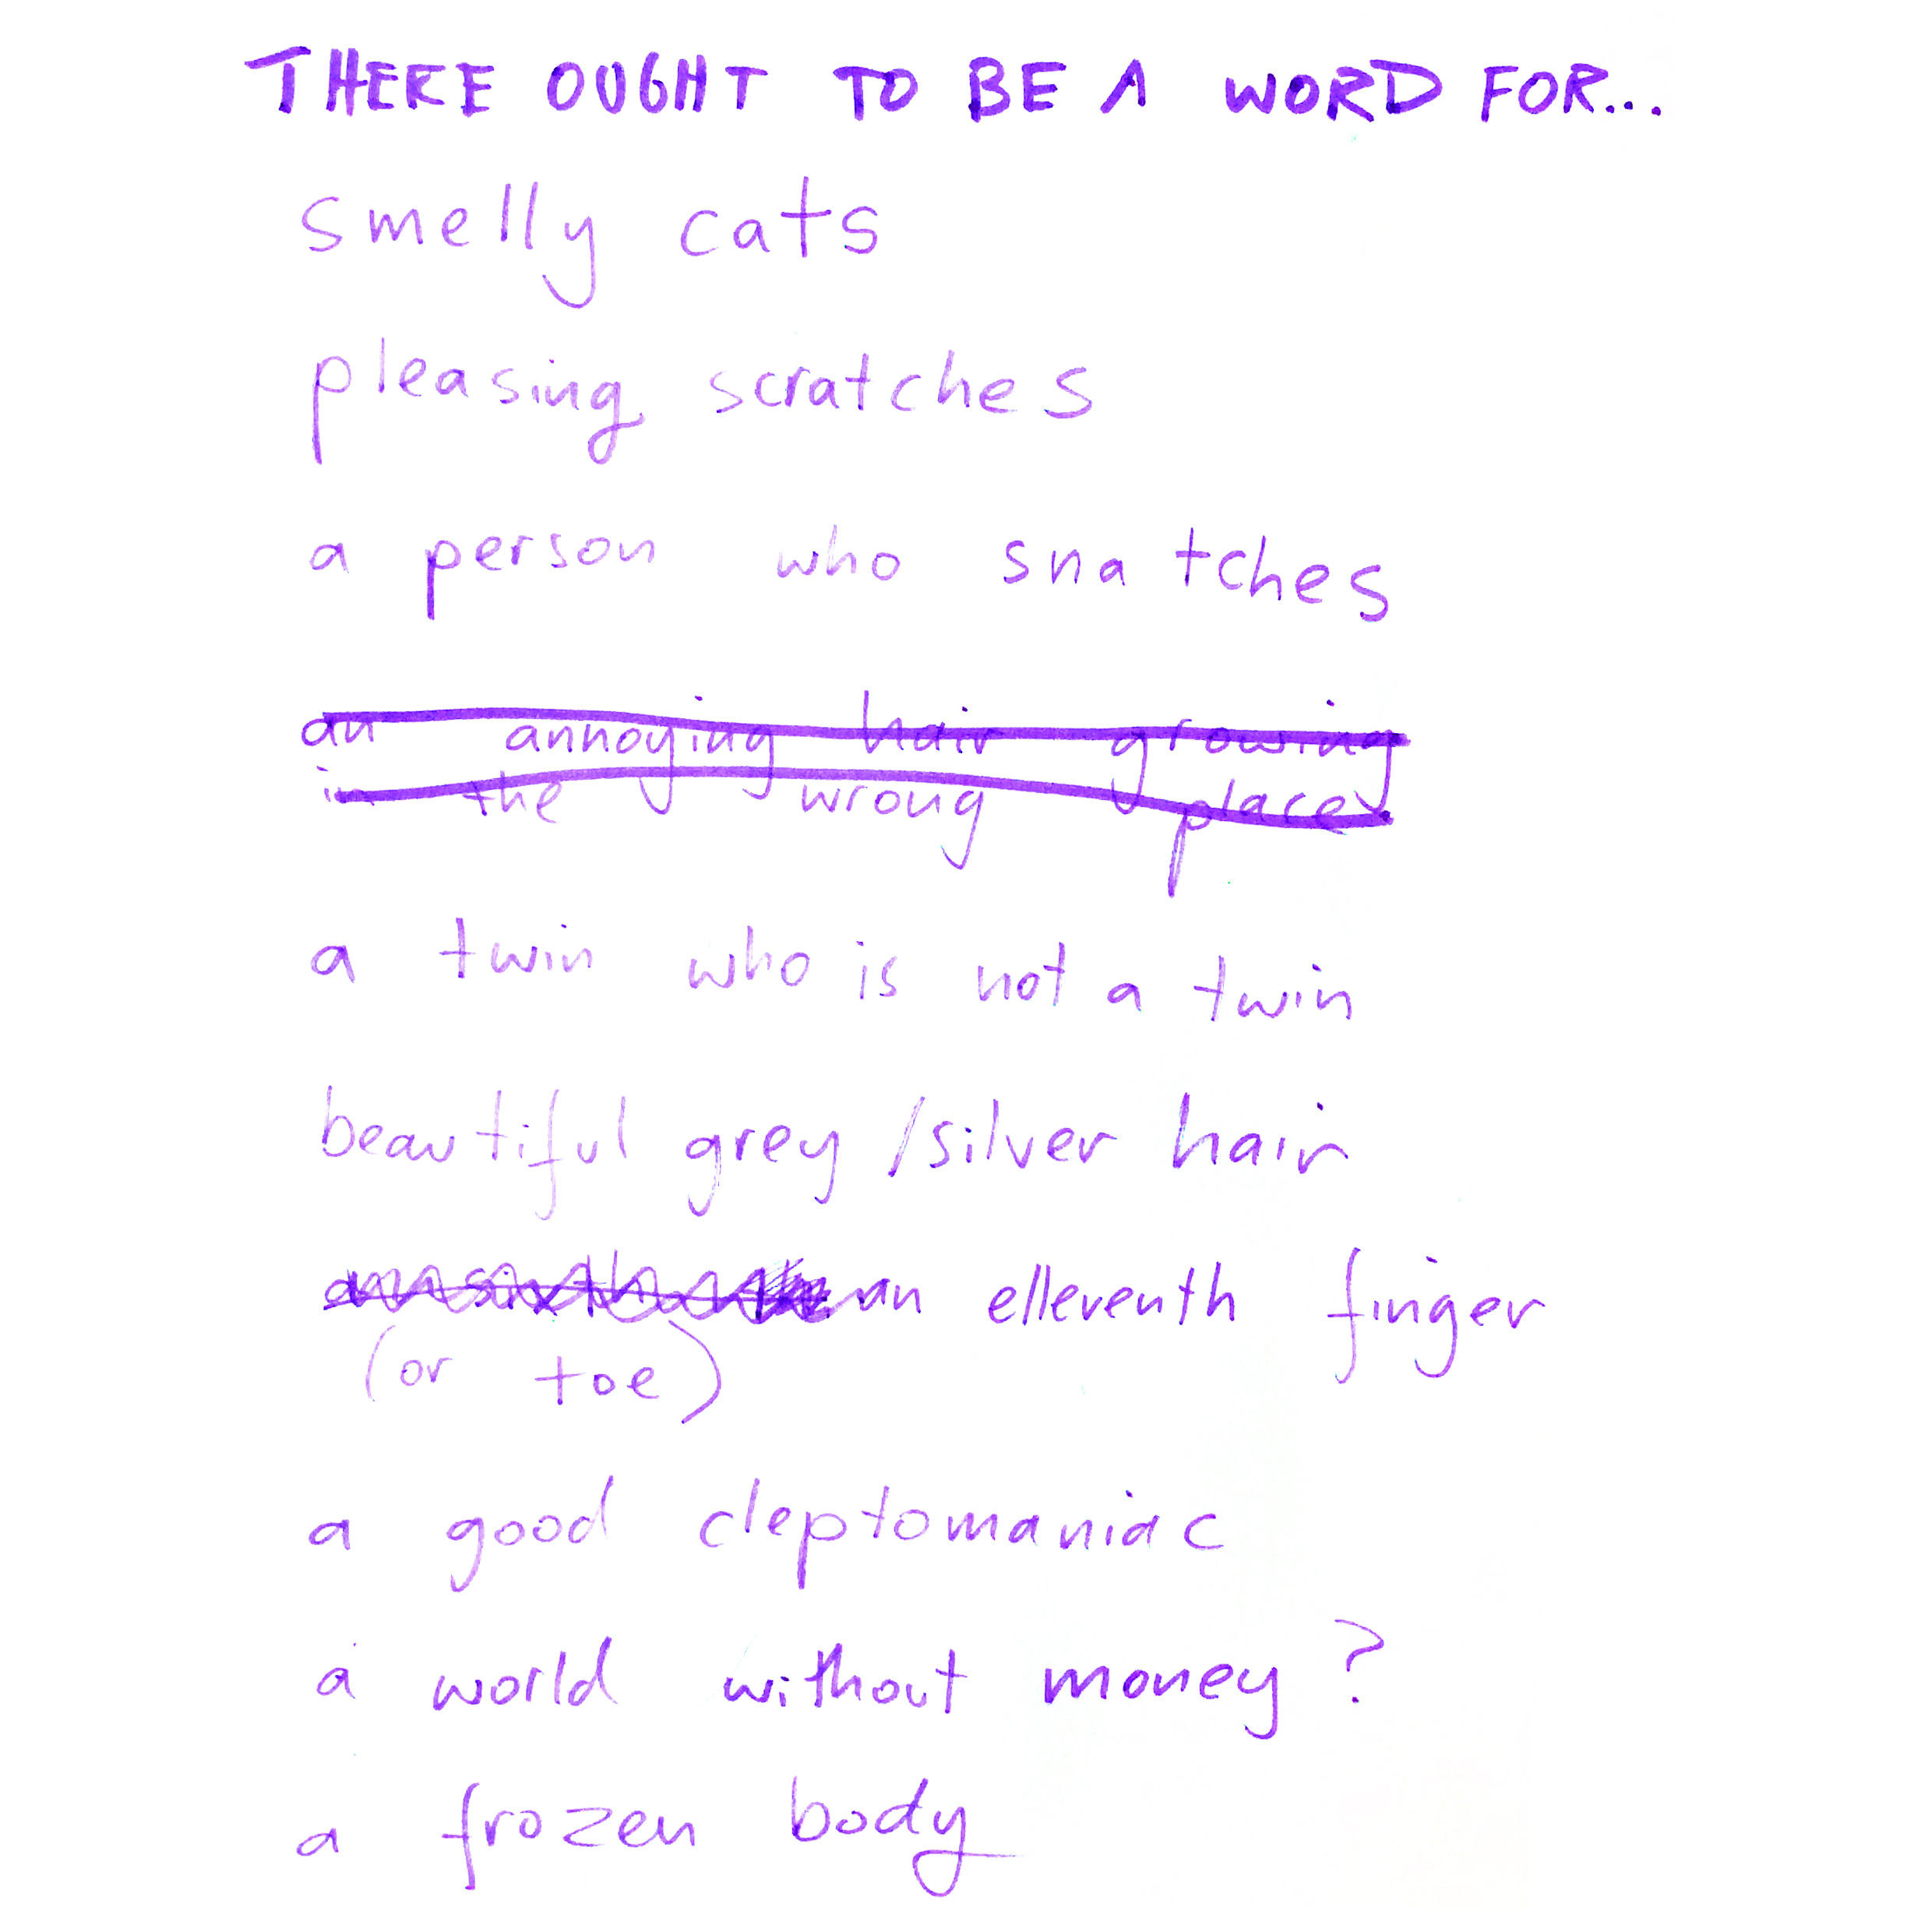 THERE OUGHT TO BE A WORD FOR...
smelly cats
pleasing scratches
a person who snatches
an annoying hair growing
in the wrong place
a twin who is not a twin
beautiful grey/silver hair
an elleventh finger
(or toe)
a good cleptomaniac
a world without money?
a frozen body